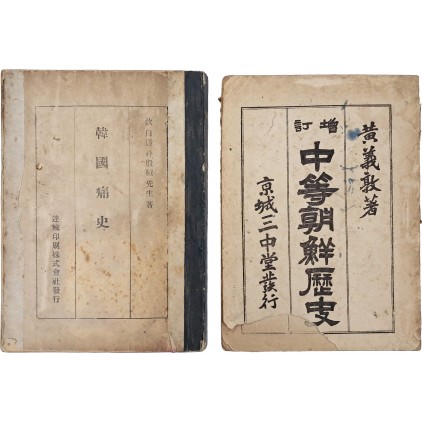 先生著
韓國痛史
達城印刷株式會社發行
黃義敦著
增訂
中等朝鮮歷史
京城三中堂發行